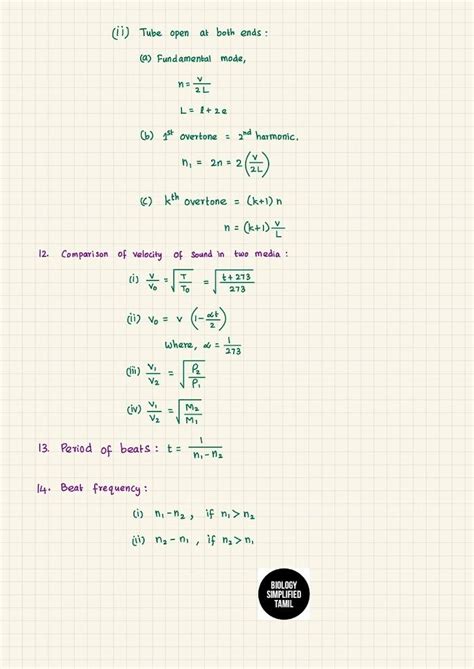 (ii) Tube open at both ends :
(a) Fundamental mode,
n = v/2L
L = l + 2e
(b) 1st overtone = 2nd harmonic.
n₁ = 2n = 2(v/2L)
(c) kth overtone = (k+1) n
n = (k+1) v/L
12. Comparison of velocity of sound in two media :
(i) v/v₀ = √(T/T₀) = √((t+273)/273)
(ii) v₀ = v (1 - αt/2)
where, α = 1/273
(iii) v₁/v₂ = √(ρ₂/ρ₁)
(iv) v₁/v₂ = √(M₂/M₁)
13. Period of beats : t = 1/(n₁-n₂)
14. Beat frequency :
(i) n₁-n₂ , if n₁>n₂
(ii) n₂-n₁ , if n₂>n₁
BIOLOGY
SIMPLIFIED
TAMIL